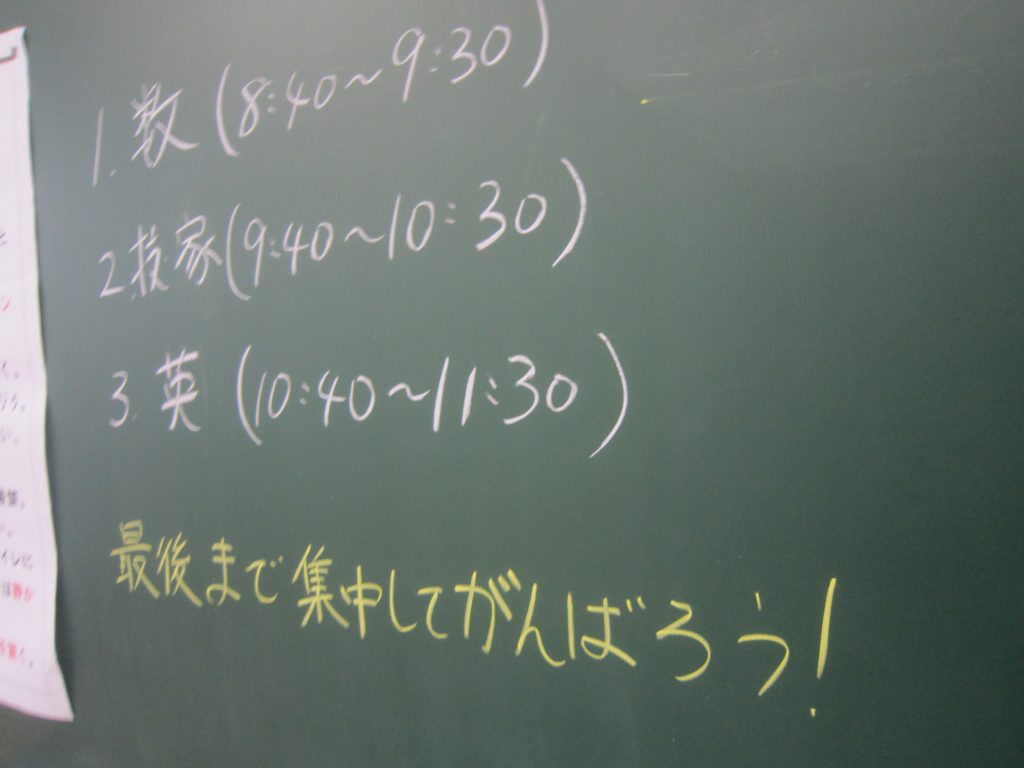 1. 数 (8:40~9:30)
2. 技家 (9:40~10:30)
3. 英 (10:40~11:30)
最後まで集中してがんばろう!